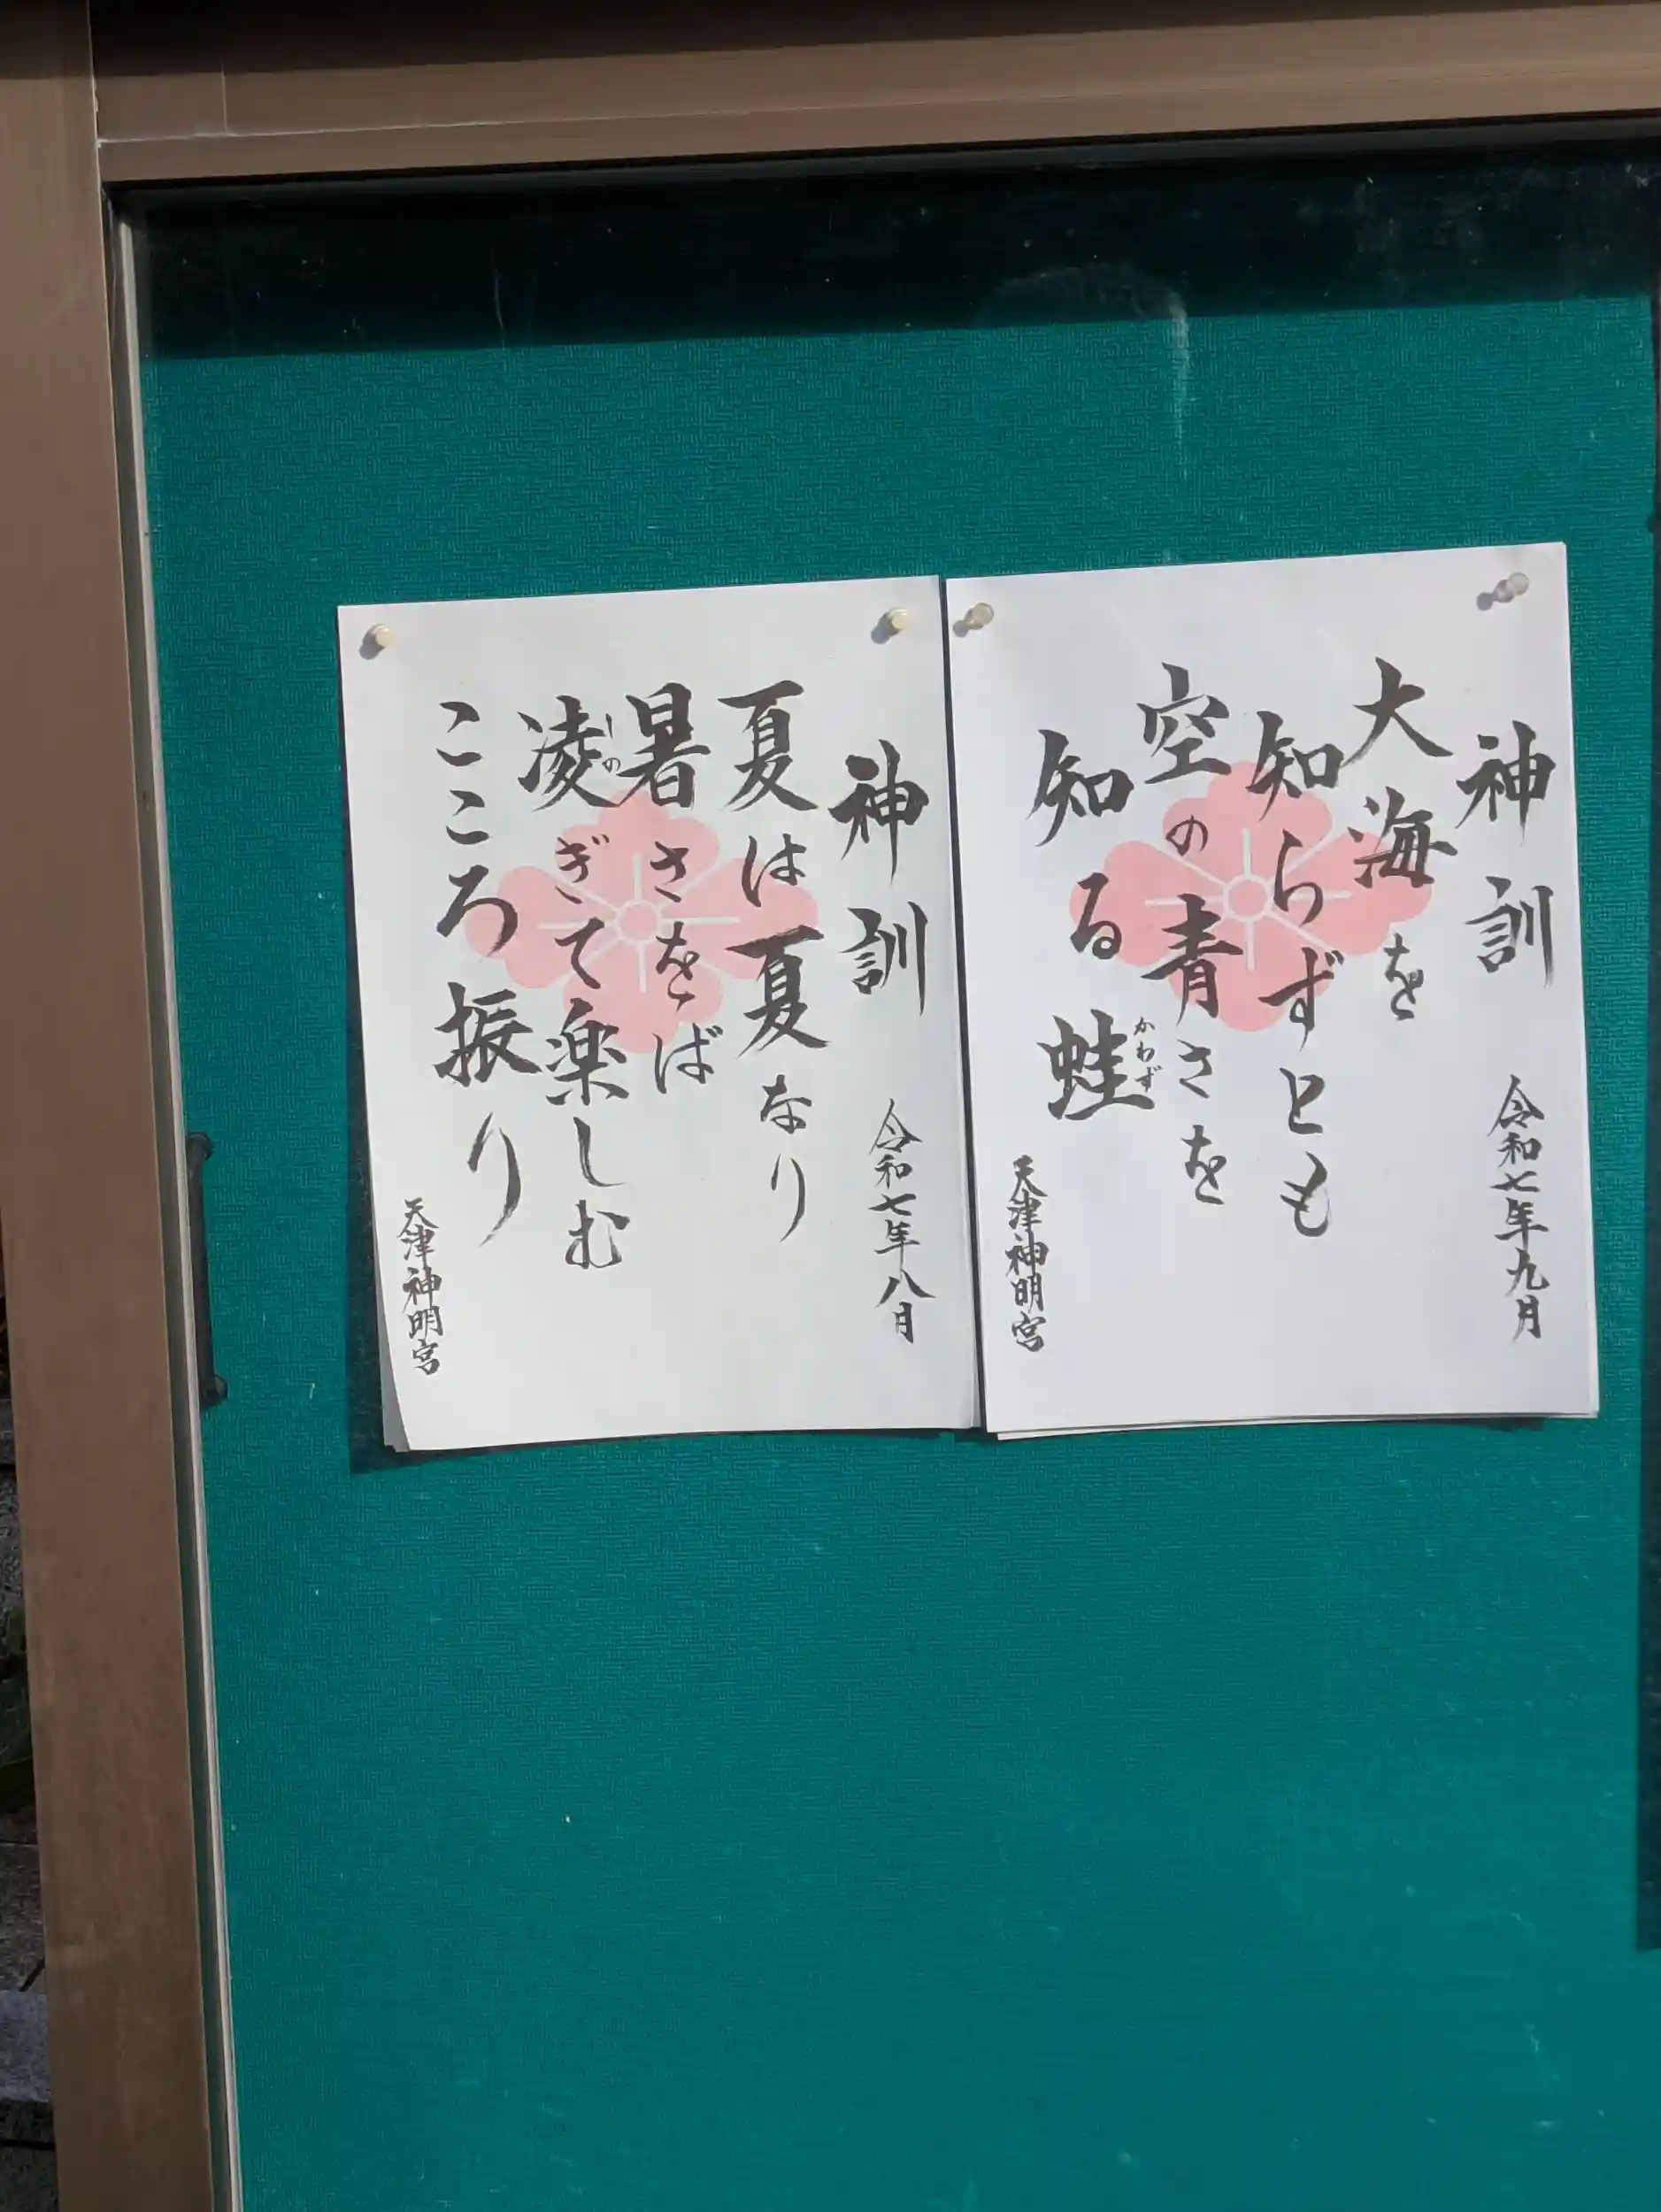 神訓 令和七年九月
大海を
知らずとも
空の青さを
知る蛙
かわず
天津神明宮
神訓 令和七年八月
夏は夏なり
暑さをば
凌ぎて楽しむ
しの
こころ振り
天津神明宮